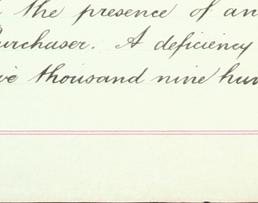 the presence of an
urchaser. A deficiency
ve thousand nine hun